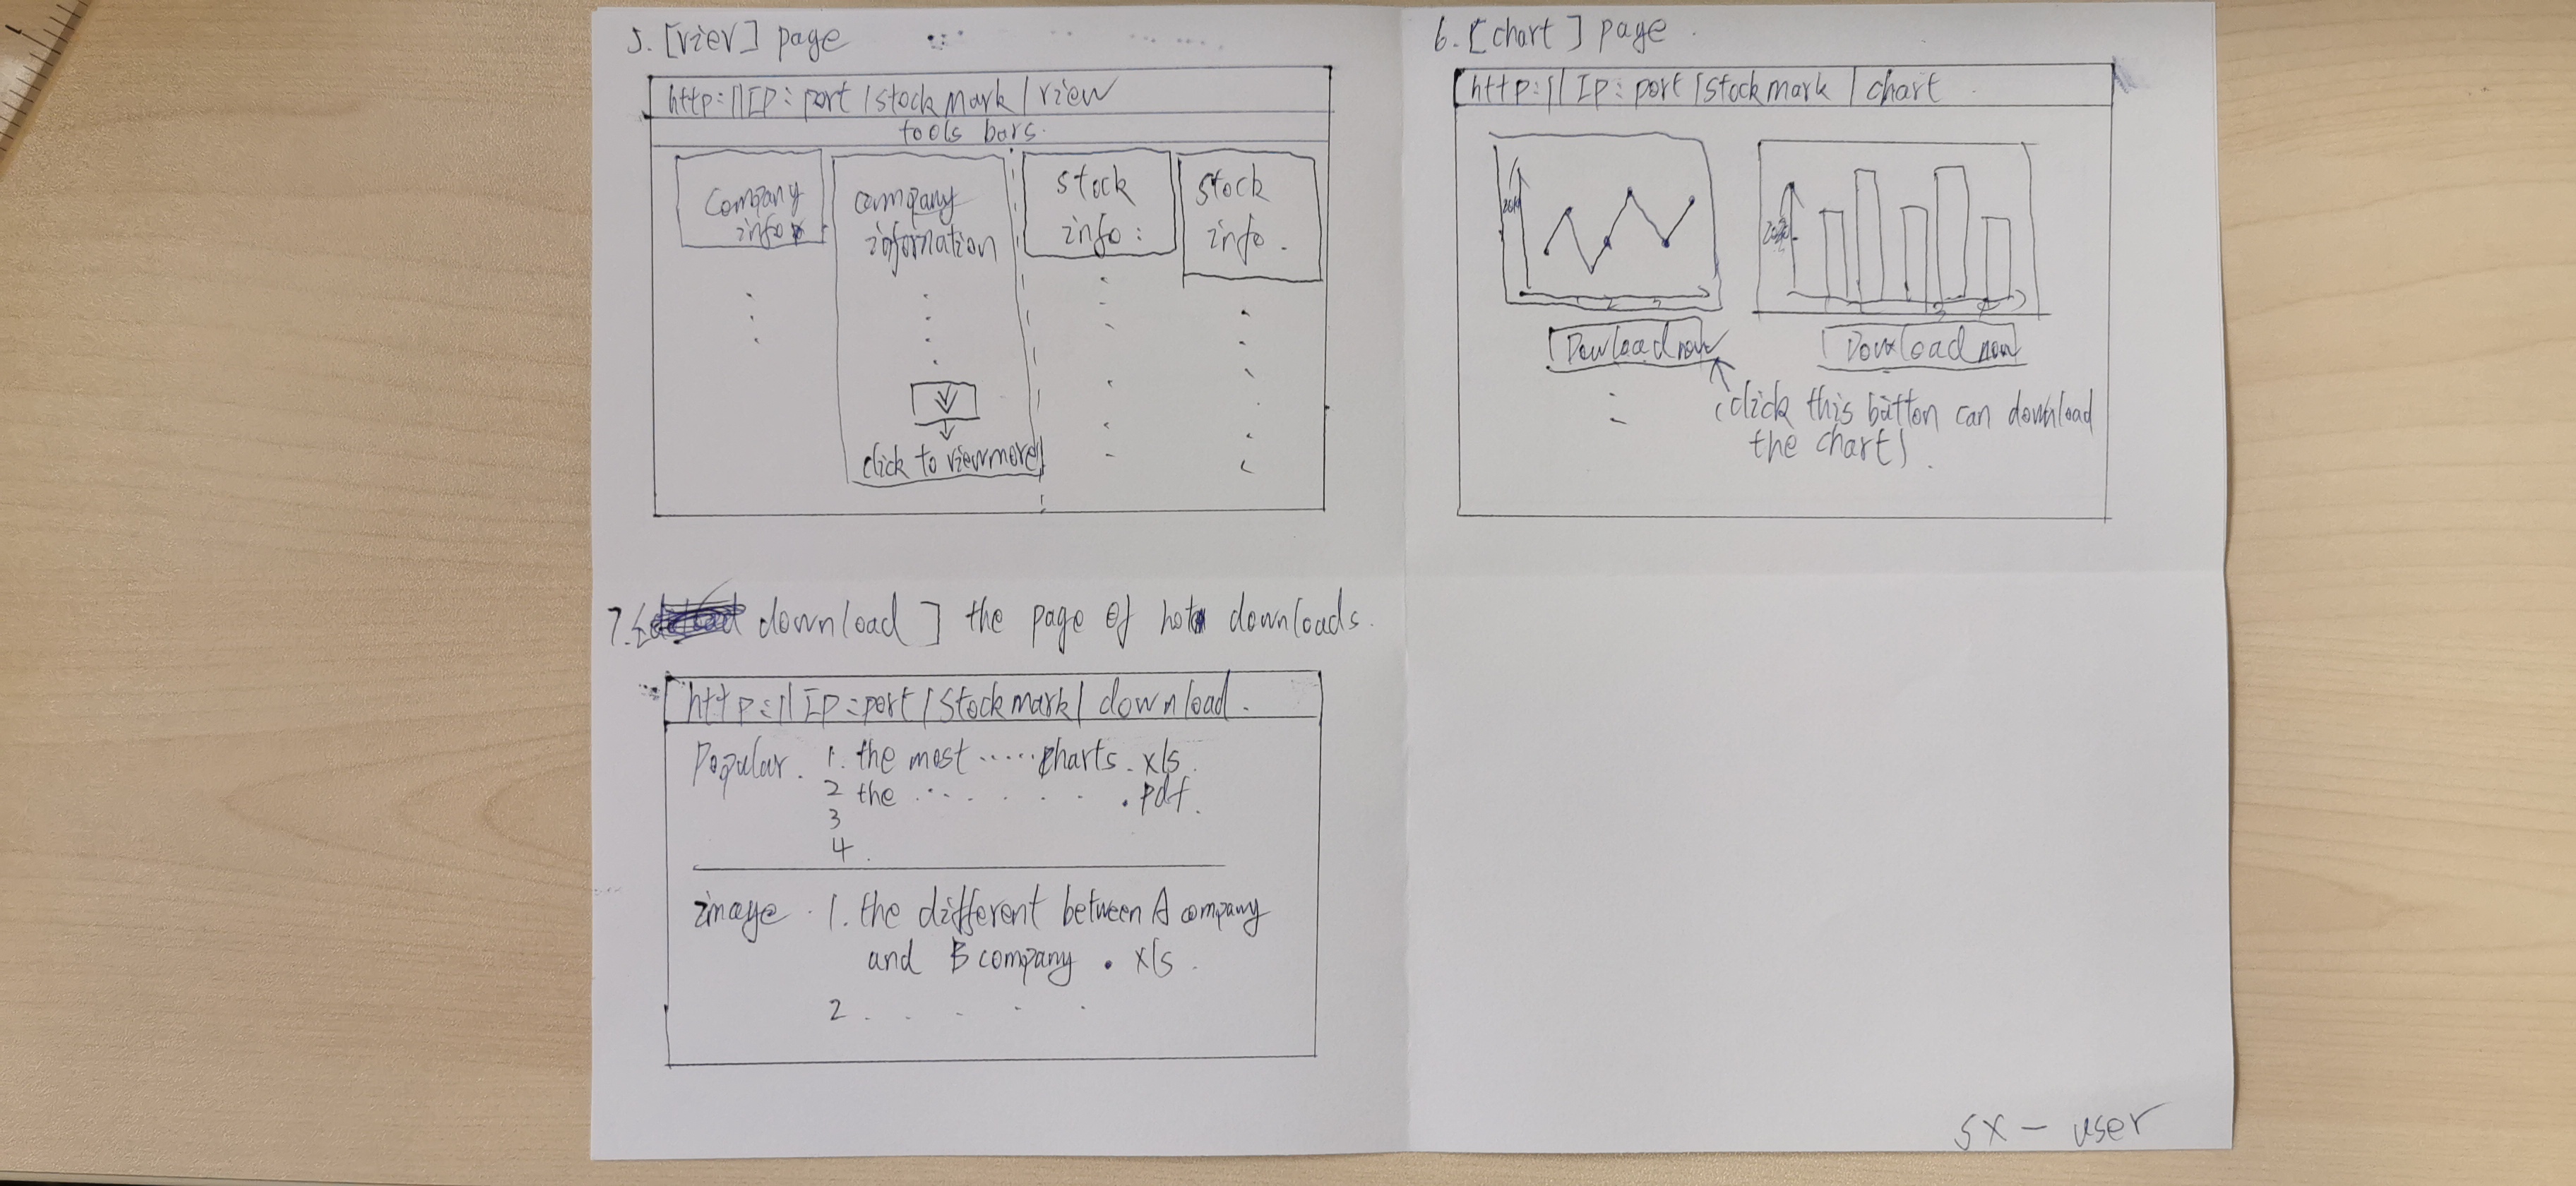 5. [view] page
http://IP:port/stock mark/view
tools bars.
company
info
company
information
stock
info :
stock
info .
click to view more
6. [chart] page .
http://IP:port/stock mark/chart .
1 2 3
3 4
Dowload now
Download now
(click this button can download
the chart) .
7. [download] the page of hot downloads.
http://IP:port/stock mark/download .
Popular . 1. the most ..... charts . xls .
2 the . . . . . . . pdf .
3
4 .
image . 1. the different between A company
and B company . xls .
2 . . . . .
SX - user